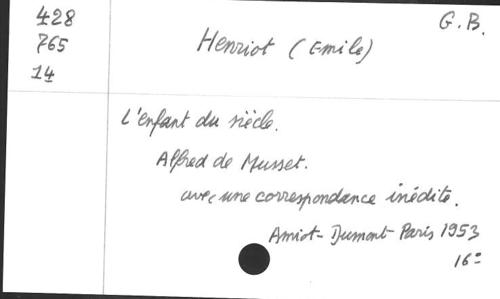 428
765
14
G. B.
Henriot (Emile)
L'enfant du siècle.
Alfred de Musset.
avec une correspondance inédite.
Amiot-Dumont-Paris 1953
16°